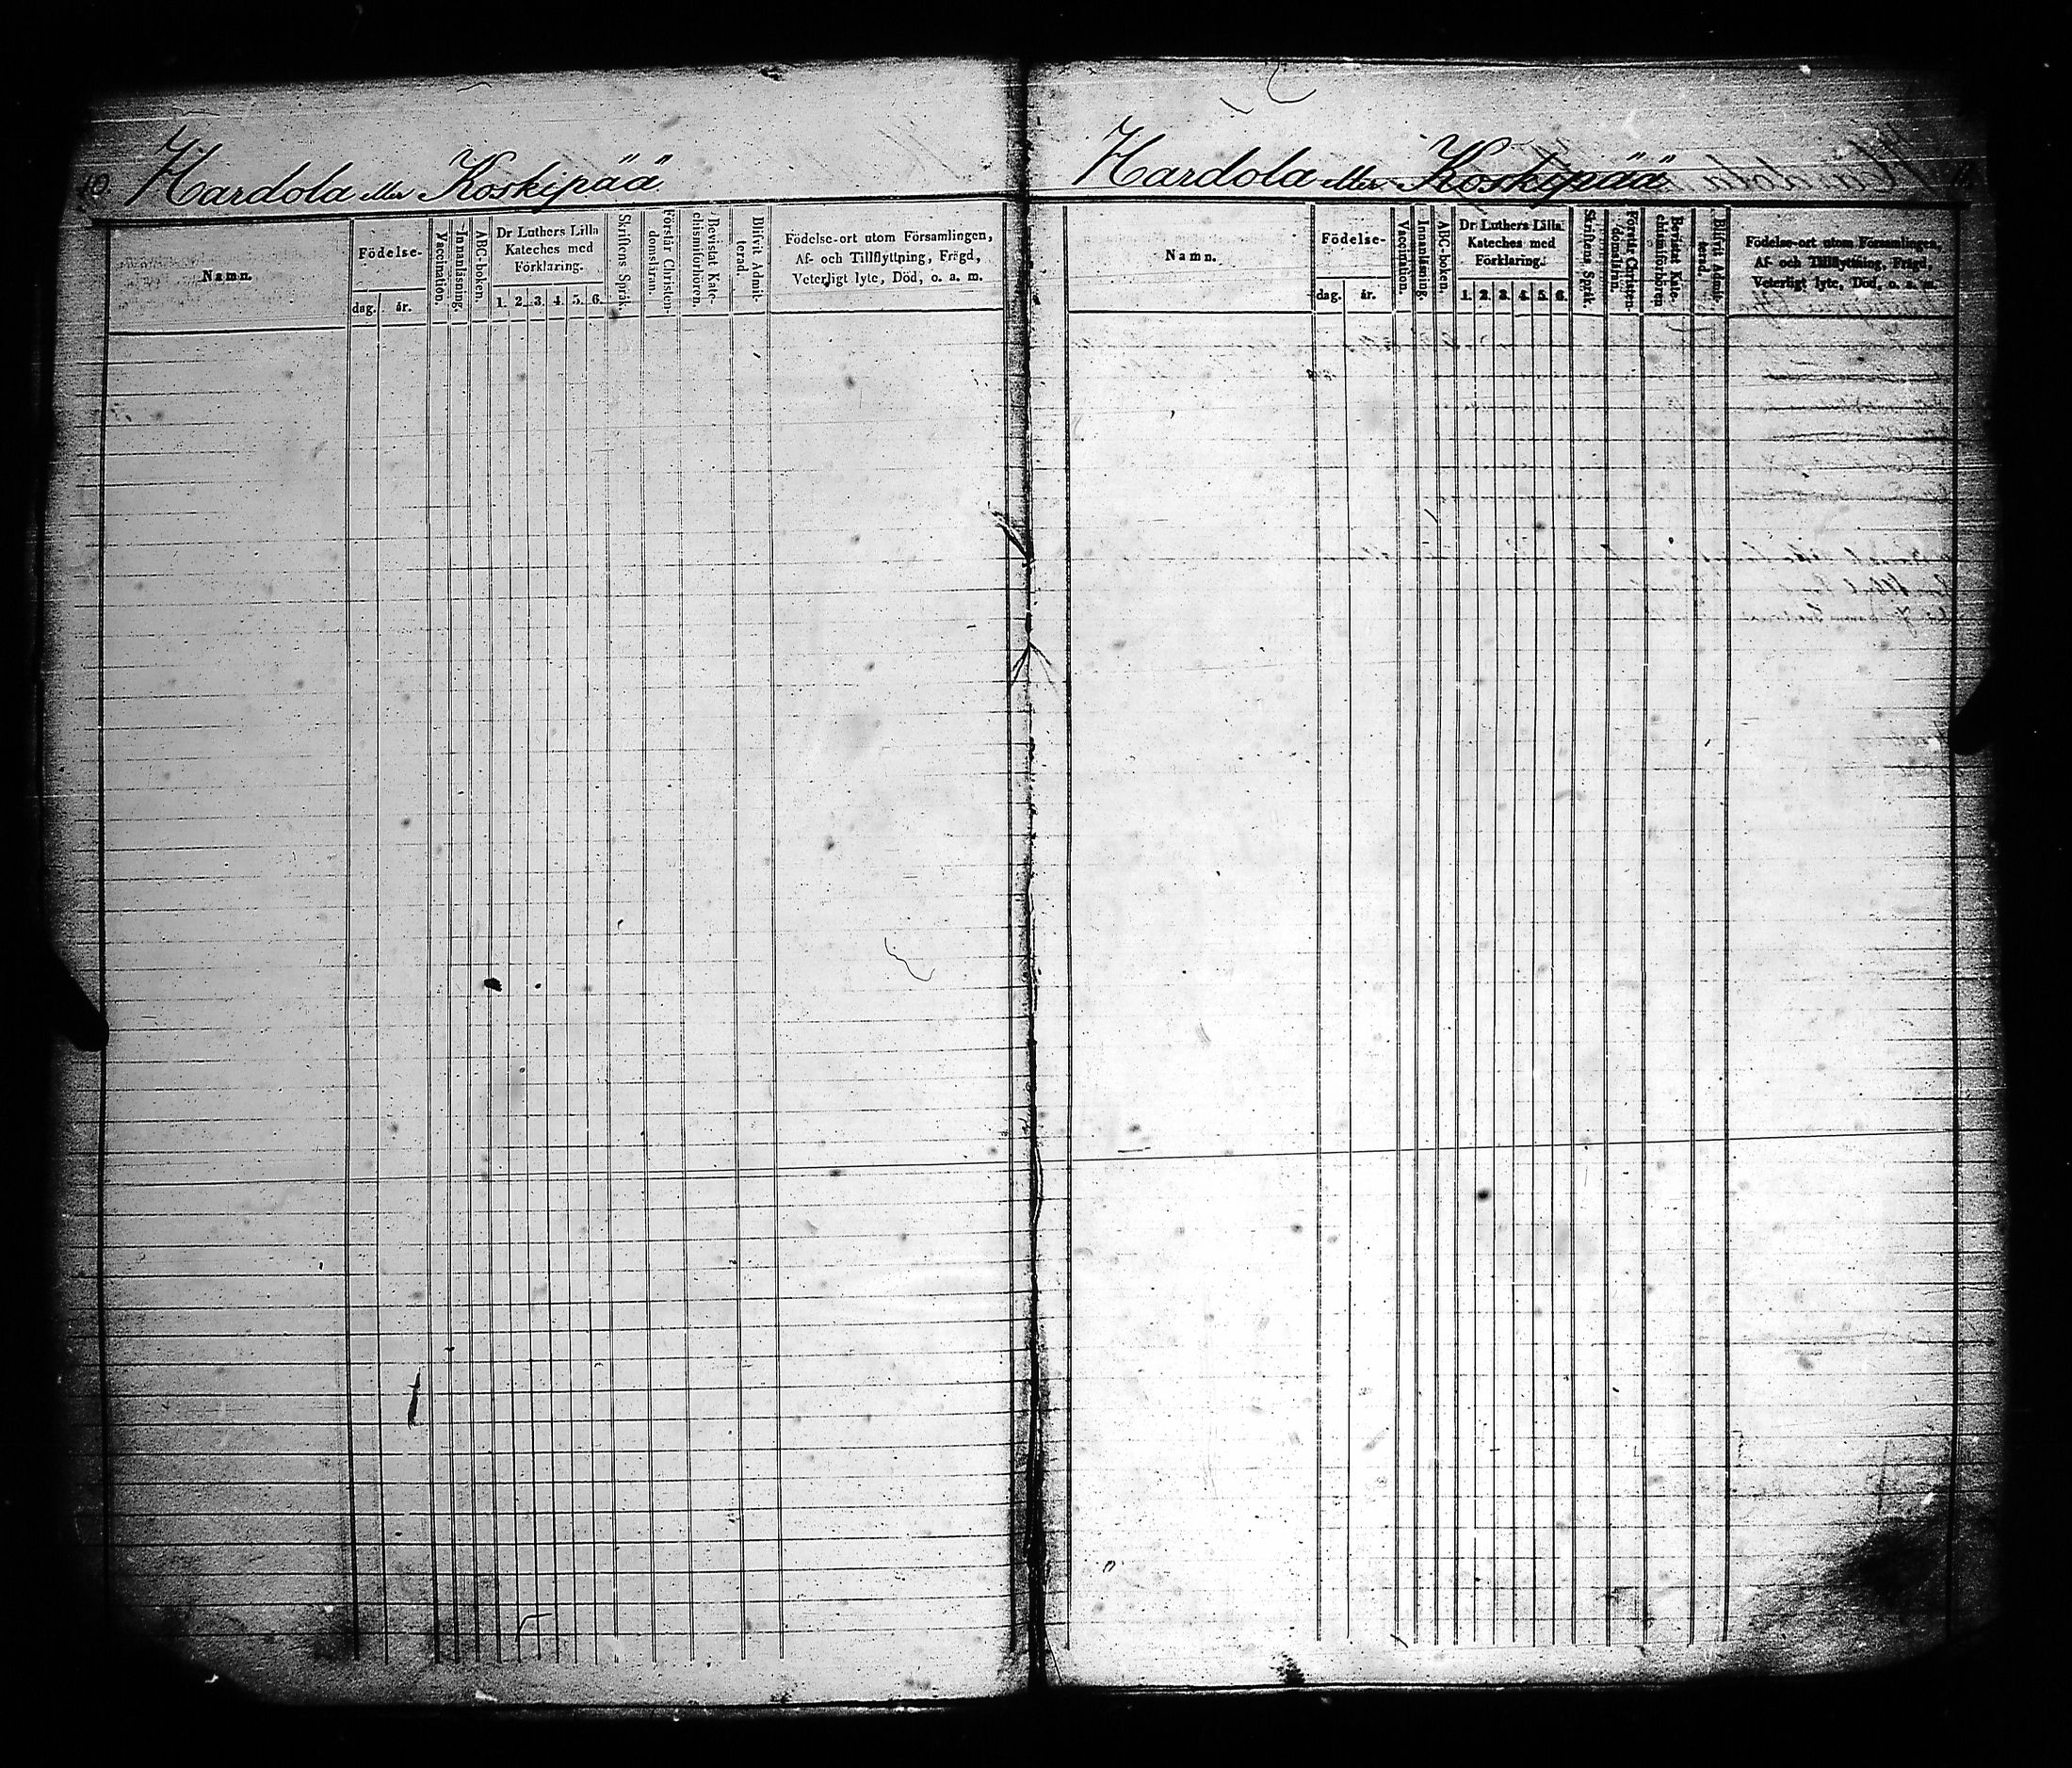 10.
Hardola eller Koskipää
Namn.
Födelse-
dag. år.
Vaccination.
Innanläsning.
ABC-boken.
Dr Luthers Lilla
Kateches med
Förklaring.
1. 2. 3. 4. 5. 6.
Skriftens Språk.
Förstår Christen-
domsläran.
Bevistat Kate-
chismiförhören.
Blifvit Admit-
terad.
Födelse-ort utom Församlingen,
Af- och Tillflyttning, Frägd,
Veterligt lyte, Död, o. a. m.
Hardola eller Koskipää
11.
Namn.
Födelse-
dag. år.
Vaccination.
Innanläsning.
ABC-boken.
Dr Luthers Lilla
Kateches med
Förklaring.
1. 2. 3. 4. 5. 6.
Skriftens Språk.
Förstår Christen-
domsläran.
Bevistat Kate-
chismiförhören
Blifvit Admit-
terad.
Födelse-ort utom Församlingen,
Af- och Tillflyttning, Frägd,
Veterligt lyte, Död, o. a. m.